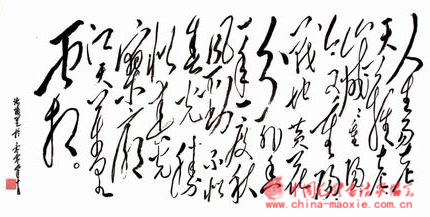 人生易老
天难老
岁岁重阳
今又重阳
战地黄花
分外香
一年一度秋
风劲不似
春光胜
似春光
寥廓
江天万里
霜。
www.china-maoxie.com